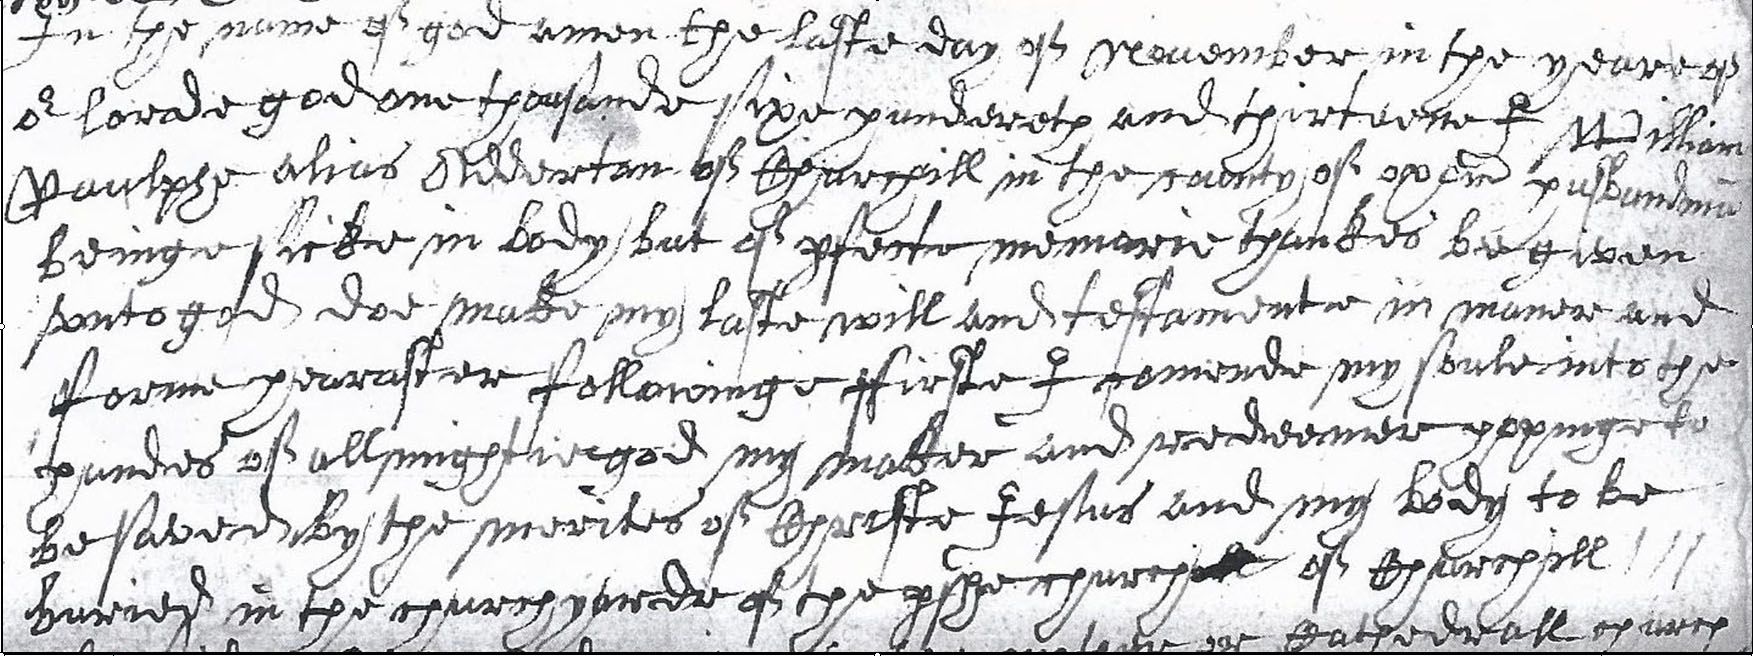 In the name of god amen the laste day of November in the yeare of
or lorde god one thousande sixe hundereth and thirteene I William
Raulphe alias Olderton of Churchill in the county of oxon husbandmā
beinge sicke in body but of pfecte memorie thankes be given
vnto god doe make my laste will and testamente in maner and
forme hearafter followinge ffirste I comende my soule into the
handes of allmightie god my maker and redeemer hopinge to
be saved by the merites of Christe Iesus and my body to be
buried in the churchyarde of the pshe church of Churchill
or Cathedrall church